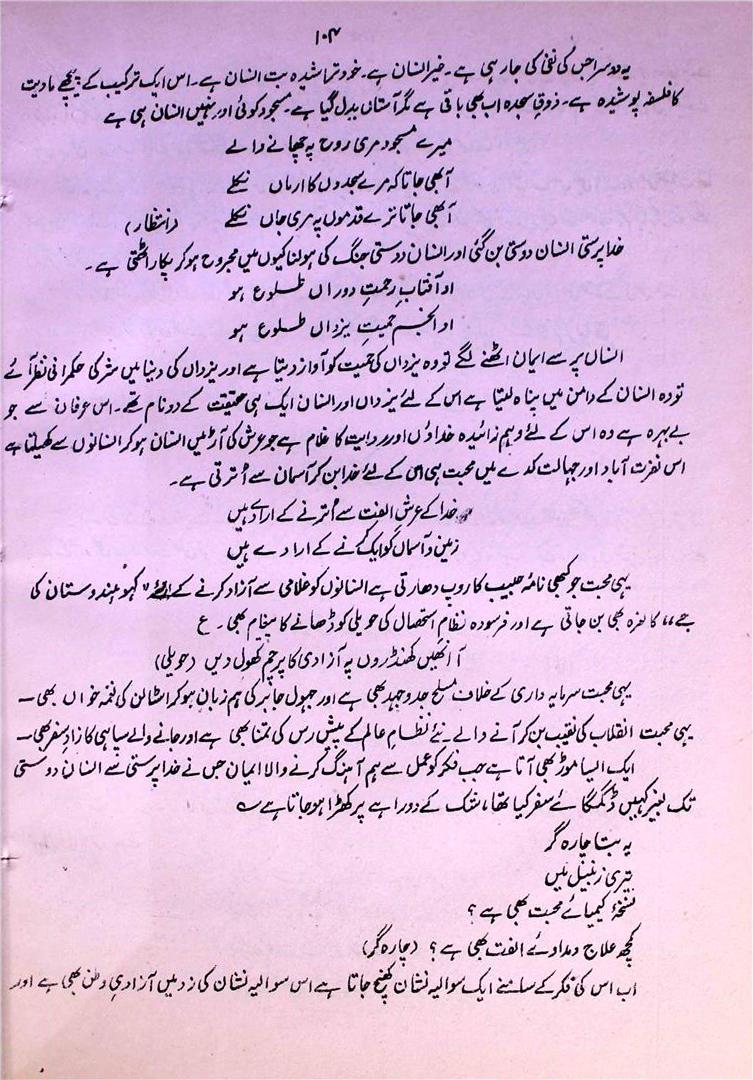 ۱۰۴
یہ دوسرا جس کی نفی کی جا رہی ہے۔ خیر انسان ہے۔ خود تراشیدہ بت انسان ہے۔ اس ایک ترکیب کے پیچھے مادیت
کا فلسفہ پوشیدہ ہے۔ ذوقِ سجدہ اب بھی باقی ہے مگر آستاں بدل گیا ہے۔ مسجود کوئی اور نہیں انسان ہی ہے
میرے مسجود مری روح پہ چھانے والے
آ بھی جا تا کہ مرے سجدوں کا ارماں نکلے
آ بھی جا تا ترے قدموں پہ مری جاں نکلے (انتظار)
خدا پرستی انسان دوستی بن گئی اور انسان دوستی جنگ کی ہولناکیوں میں مجروح ہو کر پکار اٹھتی ہے۔
او آفتابِ رحمتِ دوراں طلوع ہو
او انجم حمیتِ یزداں طلوع ہو
انساں پر سے ایمان اٹھنے لگے تو وہ یزداں کی حمیت کو آواز دیتا ہے اور یزداں کی دنیا میں شر کی حکمرانی نظر آئے
تو وہ انسان کے دامن میں پناہ لیتا ہے اس کے لئے یزداں اور انسان ایک ہی حقیقت کے دو نام تھے۔ اس عرفان سے جو
بے بہرہ ہے وہ اس کے لئے وہم زائیدہ خداؤں اور روایت کا غلام ہے جو عرش کی آڑ میں انسان ہو کر انسانوں سے کھیلتا ہے
اس نفرت آباد اور جہالت کدے میں محبت ہی اس کے لئے خدا بن کر آسمان سے اُترتی ہے۔
خدا کے عرشِ الفت سے اُترنے کے ارادے ہیں
زمین و آسماں کو ایک کرنے کے ارادے ہیں
یہی محبت جو کبھی نامۂ حبیب کا روپ دھارتی ہے انسانوں کو غلامی سے آزاد کرنے کے لئے "کہو ہندوستان کی
جے" کا نعرہ بھی بن جاتی ہے اور فرسودہ نظامِ استحصال کی حویلی کو ڈھانے کا پیغام بھی۔ ع
آ انھیں کھنڈروں پہ آزادی کا پرچم کھول دیں (حویلی)
یہی محبت سرمایہ داری کے خلاف مسلح جدوجہد بھی ہے اور جہول جابر کی ہم زبان ہو کر اسٹالن کی نغمہ خواں بھی۔
یہی محبت انقلاب کی نقیب بن کر آنے والے نئے نظامِ عالم کے پیش رس کی تمنا بھی ہے اور جانے والے سپاہی کا زادِ سفر بھی۔
ایک ایسا موڑ بھی آتا ہے جب فکر کو عمل سے ہم آہنگ کرنے والا ایمان جس نے خدا پرستی سے انسان دوستی
تک بغیر کہیں ڈگمگائے سفر کیا تھا، شک کے دوراہے پر کھڑا ہو جاتا ہے۔
یہ بتا چارہ گر
تیری زنبیل میں
نسخۂ کیمیائے محبت بھی ہے؟
کچھ علاج و مداوائے الفت بھی ہے؟ (چارہ گر)
اب اس کی فکر کے سامنے ایک سوالیہ نشان کھنچ جاتا ہے اس سوالیہ نشان کی زد میں آزادیِ وطن بھی ہے اور